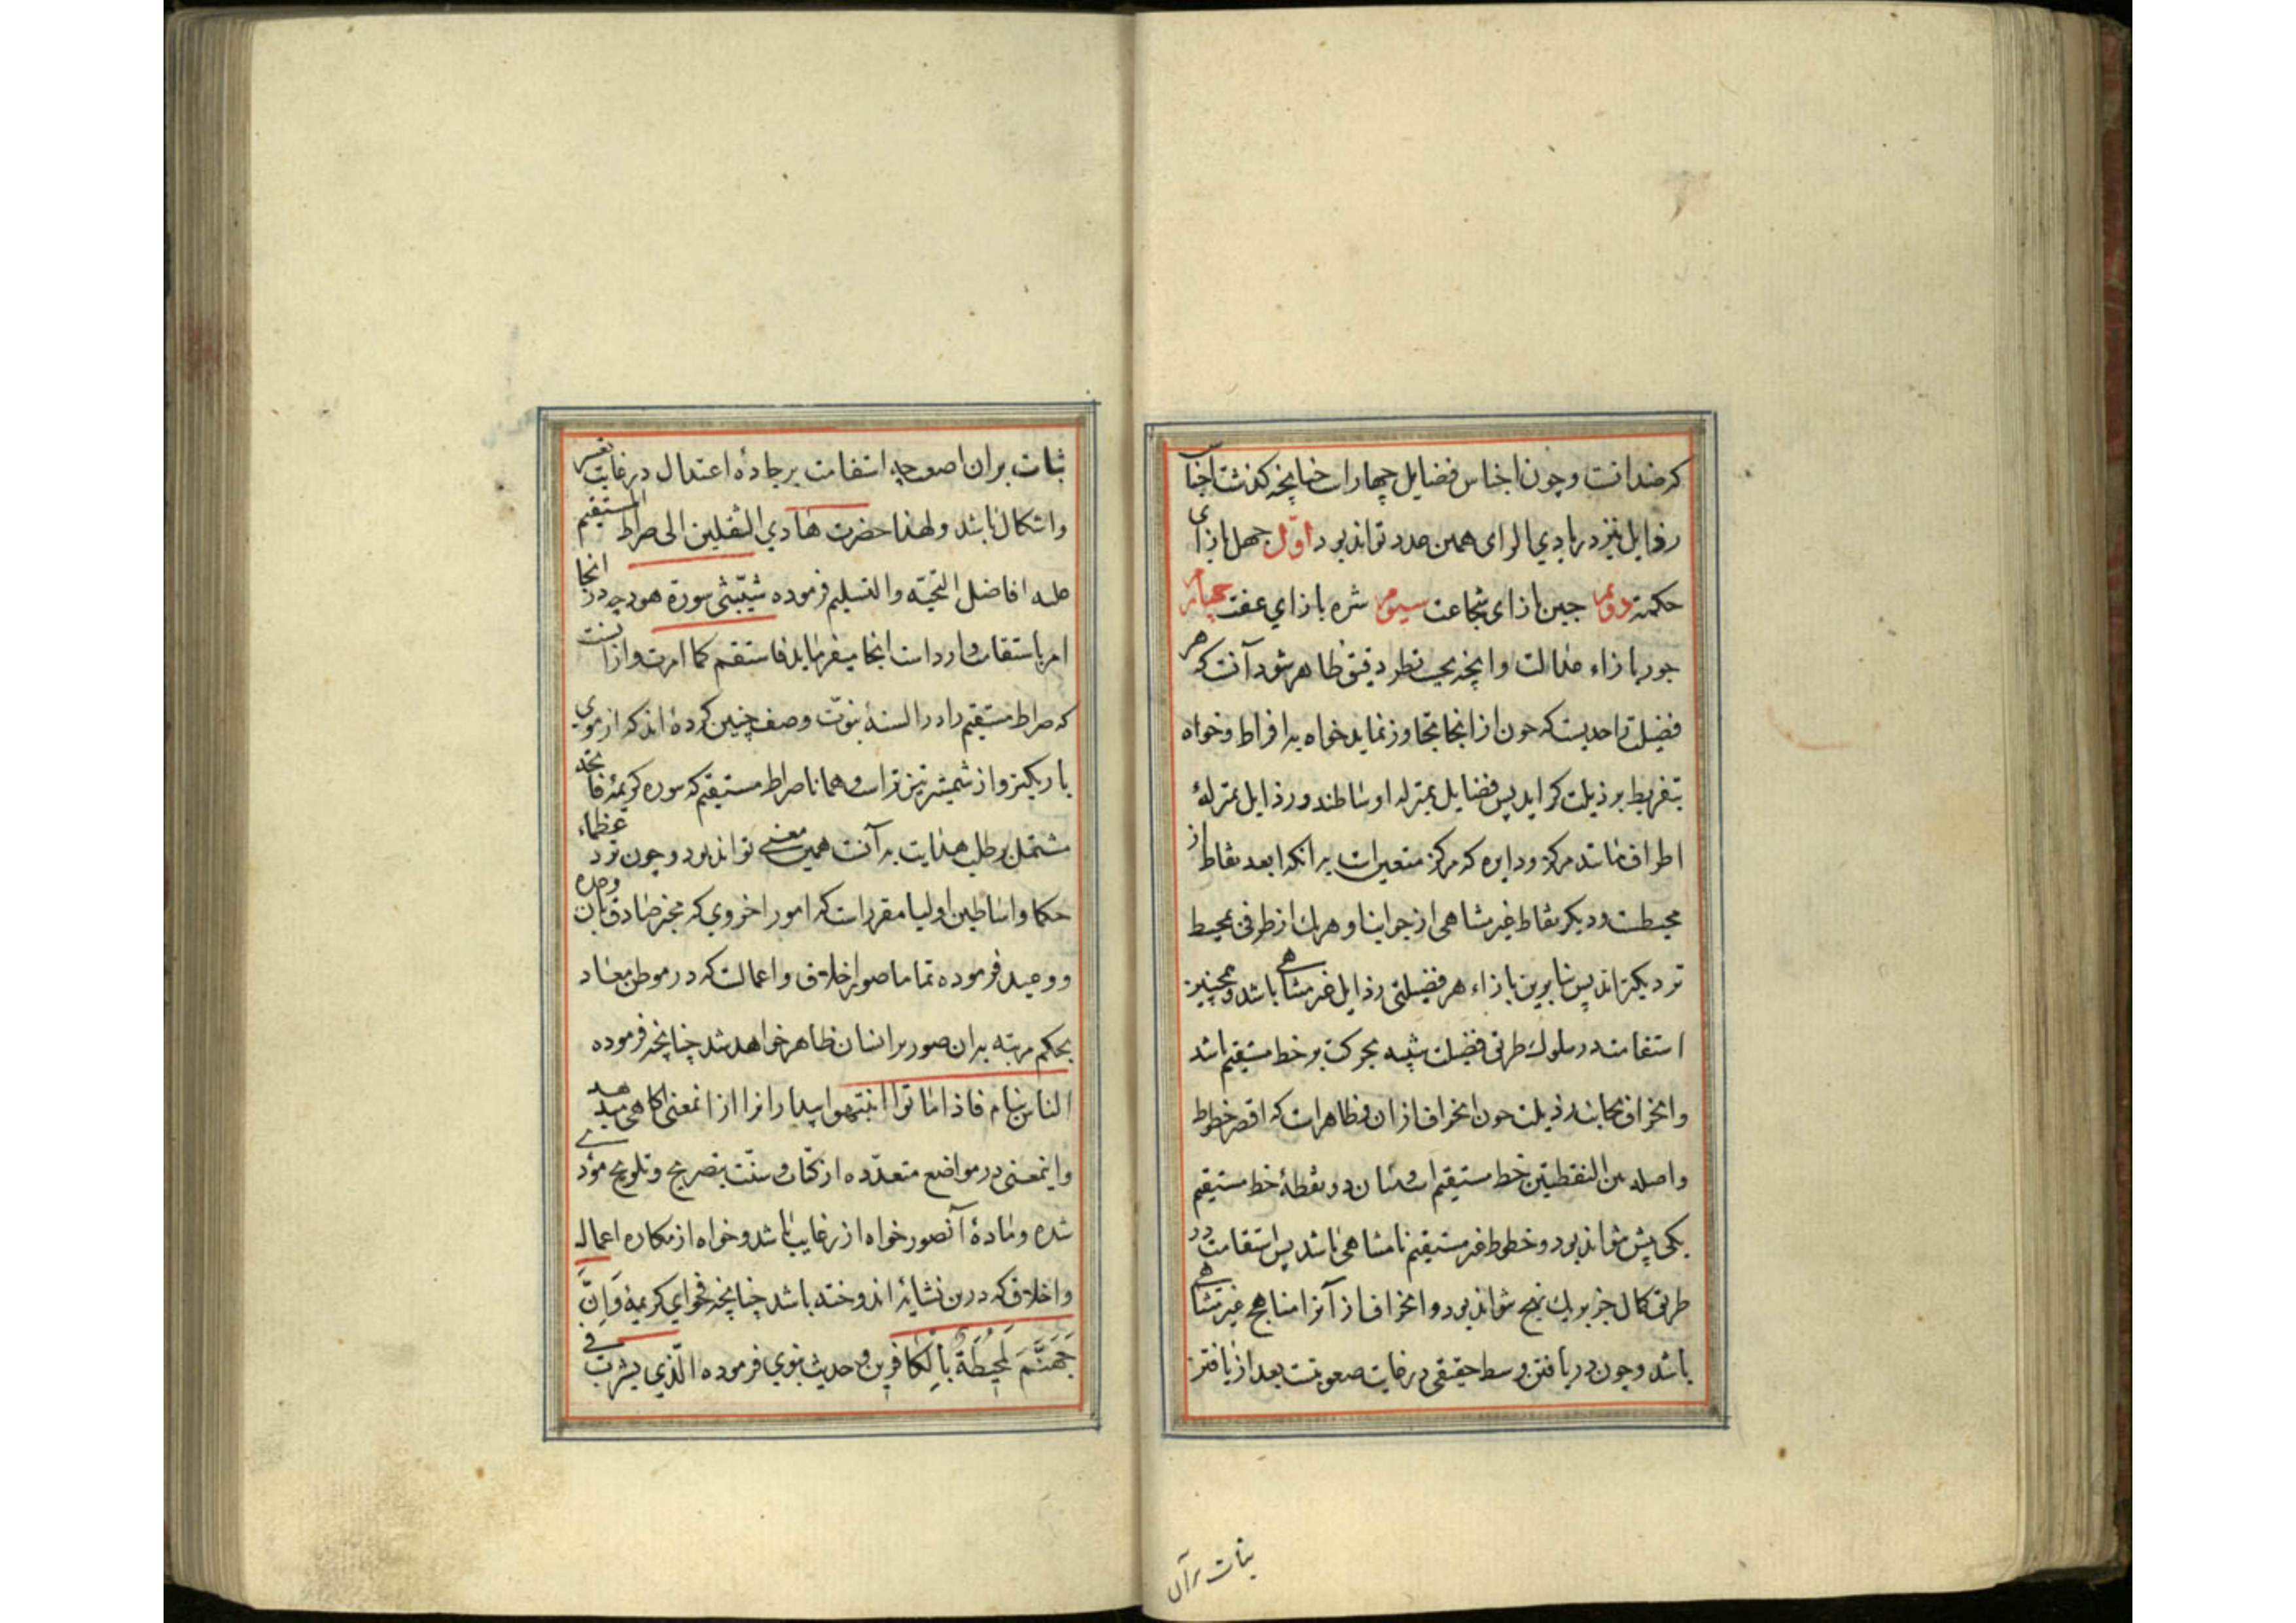 که ضد آنست و چون اجناس فضایل چهارست چنانچه گذشت اجناس
رذایل نیز در بادی الرای همین عدد تواند بود اول جهل بازای
حکمت دوم جبن بازای شجاعت سیوم شره بازای عفت چهارم
جور بازاء عدالت وانچه بحسب نظر دقیق ظاهر شود آنست که هر
فضیلت را حدیست که چون از آنجا تجاوز نماید خواه به افراط و خواه
بتفریط برذیلت گراید پس فضایل بمنزله اوساطند و رذایل بمنزلهٔ
اطراف مانند مرکز و دایره که مرکز متعین است به آنکه ابعد نقاط از
محیطست و دیگر نقاط غیر متناهی از جوانب او هریك از طرفی بمحیط
نزدیکتراند پس بنابرین بازاء هر فضیلتی رذایل غیر متناهی باشد و همچنین
استقامت در سلوك طریق فضیلت شبیه بحرکت بر خط مستقیم باشد
وانحراف بجانب رذیلت چون انحراف از آن و ظاهرست که اقصر خطوط
واصله بین النقطتین خط مستقیم است و میان دو نقطهٔ خط مستقیم
یکی بیش نتواند بود و خطوط غیر مستقیم نامتناهی باشد پس استقامت در
طریق کمال جز بر یك نهج نتواند بود و انحراف از آنرا مناهج غیر متناهی
باشد و چون دریافتن وسط حقیقی در غایت صعوبتست بعد از یافتن
ثبات بر آن
ثبات بران اصعب چه استقامت بر جادهٔ اعتدال در غایت تعسر
واشکال باشد و لهذا حضرت هادي الثقلین الی صراط المستقیم
علیه افاضل التحیّه والتسلیم فرموده شیّبتنی سورة هود چه در انجا
امر باستقامت وارد است انجا میفرماید فاستقم کما امرت و ازینست
که صراط مستقیم را در السنهٔ نبوّت وصف چنین کرده اند که از موی
باریکتر و از شمشیر تیزترست و همانا صراط مستقیم که سوره کریمهٔ فاتحه
مشتمل بر طلب هدایت به آنست همین معنی تواند بود و چون نزد عظماء
حکما و اساطین اولیا مقررست که امور اخروی که مخبر صادق بان وعده
و وعید فرموده تماما صور اخلاق و اعمالست که در موطن معاد
بحکم مرتبه بدان صور بر انسان ظاهر خواهد شد چنانچه فرموده
الناس نیام فاذا ماتوا انتبهوا بیدارانرا از انمعنی اگاهی میدهد
واینمعنی در مواضع متعدّده از کتاب و سنّت بتصریح و تلویح مؤدی
شده و مادهٔ آنصور خواه از رغایب باشد و خواه از مکاره اعمال
واخلاق که درین نشأیه اندوخته باشد چنانچه فحوای کریمهٔ وَاِنَّ
جَهَنَّمَ لَمُحِيطَةٌ بِالْكَافِرِينَ و حدیث نبوی فرموده الّذی یشرب فی